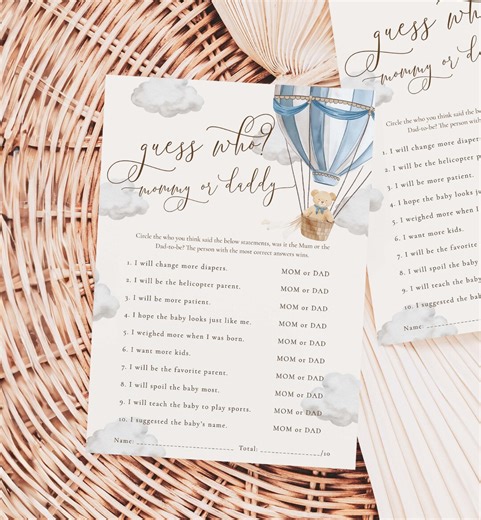 guess who?
mommy or daddy
Circle the who you think said the below statements, was it the Mum or the
Dad-to-be? The person with the more correct answers wins.
1. I will change more diapers. MOM or DAD
2. I will be the helicopter parent. MOM or DAD
3. I will be more patient. MOM or DAD
4. I hope the baby looks just like me. MOM or DAD
5. I weighed more when I was born. MOM or DAD
6. I want more kids. MOM or DAD
7. I will be the favorite parent. MOM or DAD
8. I will spoil the baby most. MOM or DAD
9. I will teach the baby to play sports. MOM or DAD
10. I suggested the baby's name. MOM or DAD
Name: Total: /10
guess who
mommy or dadd
Circle the who you think said the below
Dad-to-be? The person with the
1. I will change more diapers
2. I will be the helicopter pare
3. I will be more patient.
4. I hope the baby looks just
5. I weighed more when I w
6. I want more kids.
7. I will be the favorite
8. I will spoil the baby
9. I will teach the baby
10. I suggested the ba
Name: